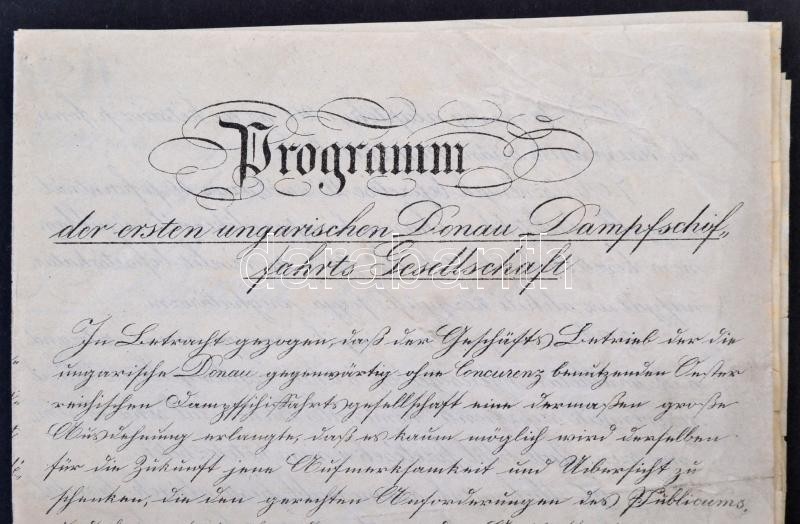 Programm
der ersten ungarischen Donau-Dampfschif-
fahrts Gesellschaft
darabanth
In Betracht gezogen, daß der Geschäfts Betrieb der die
ungarische Donau gegenwärtig ohne Concurenz benutzenden Oester
reichischen Dampfschiffahrtsgesellschaft eine dermaßen große
Ausdehnung erlangte, daß es kaum möglich wird derselben
für die Zukunft jene Aufmerksamkeit und Uebersicht zu
schenken, die den gerechten Anforderungen des Publicums